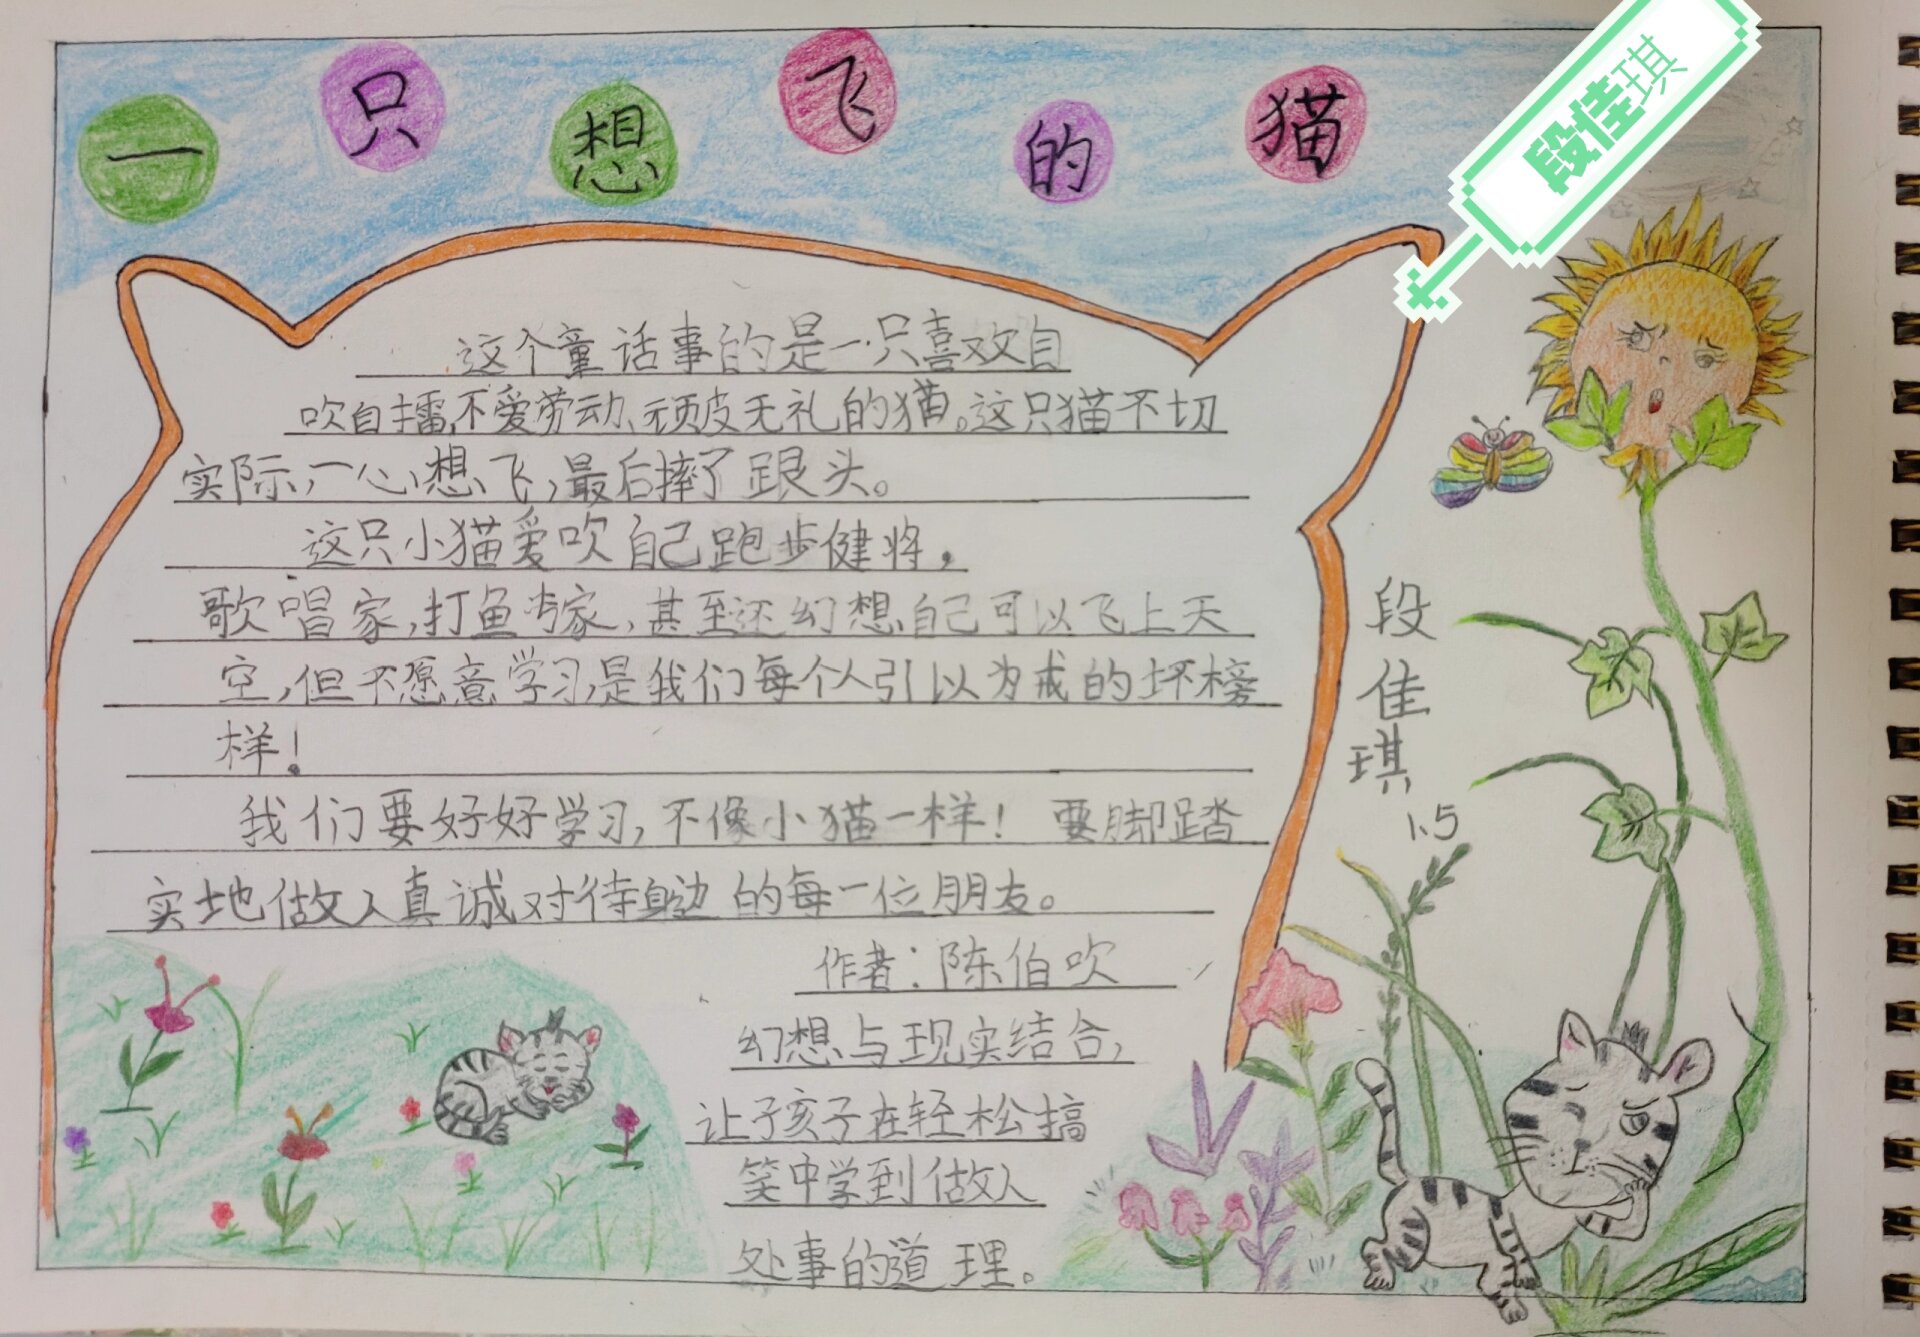 一只想飞的猫
段佳琪
这个童话事的是一只喜欢自
吹自擂,不爱劳动、顽皮无礼的猫。这只猫不切
实际,一心想飞,最后摔了跟头。
这只小猫爱吹自己跑步健将,
歌唱家,打鱼专家,甚至还幻想自己可以飞上天
空,但不愿意学习,是我们每个人引以为戒的坏榜
样!
我们要好好学习,不像小猫一样! 要脚踏
实地做人真诚对待身边的每一位朋友。
作者:陈伯吹
幻想与现实结合,
让子孩子在轻松搞
笑中学到做人
处事的道理。
段佳琪
1、5